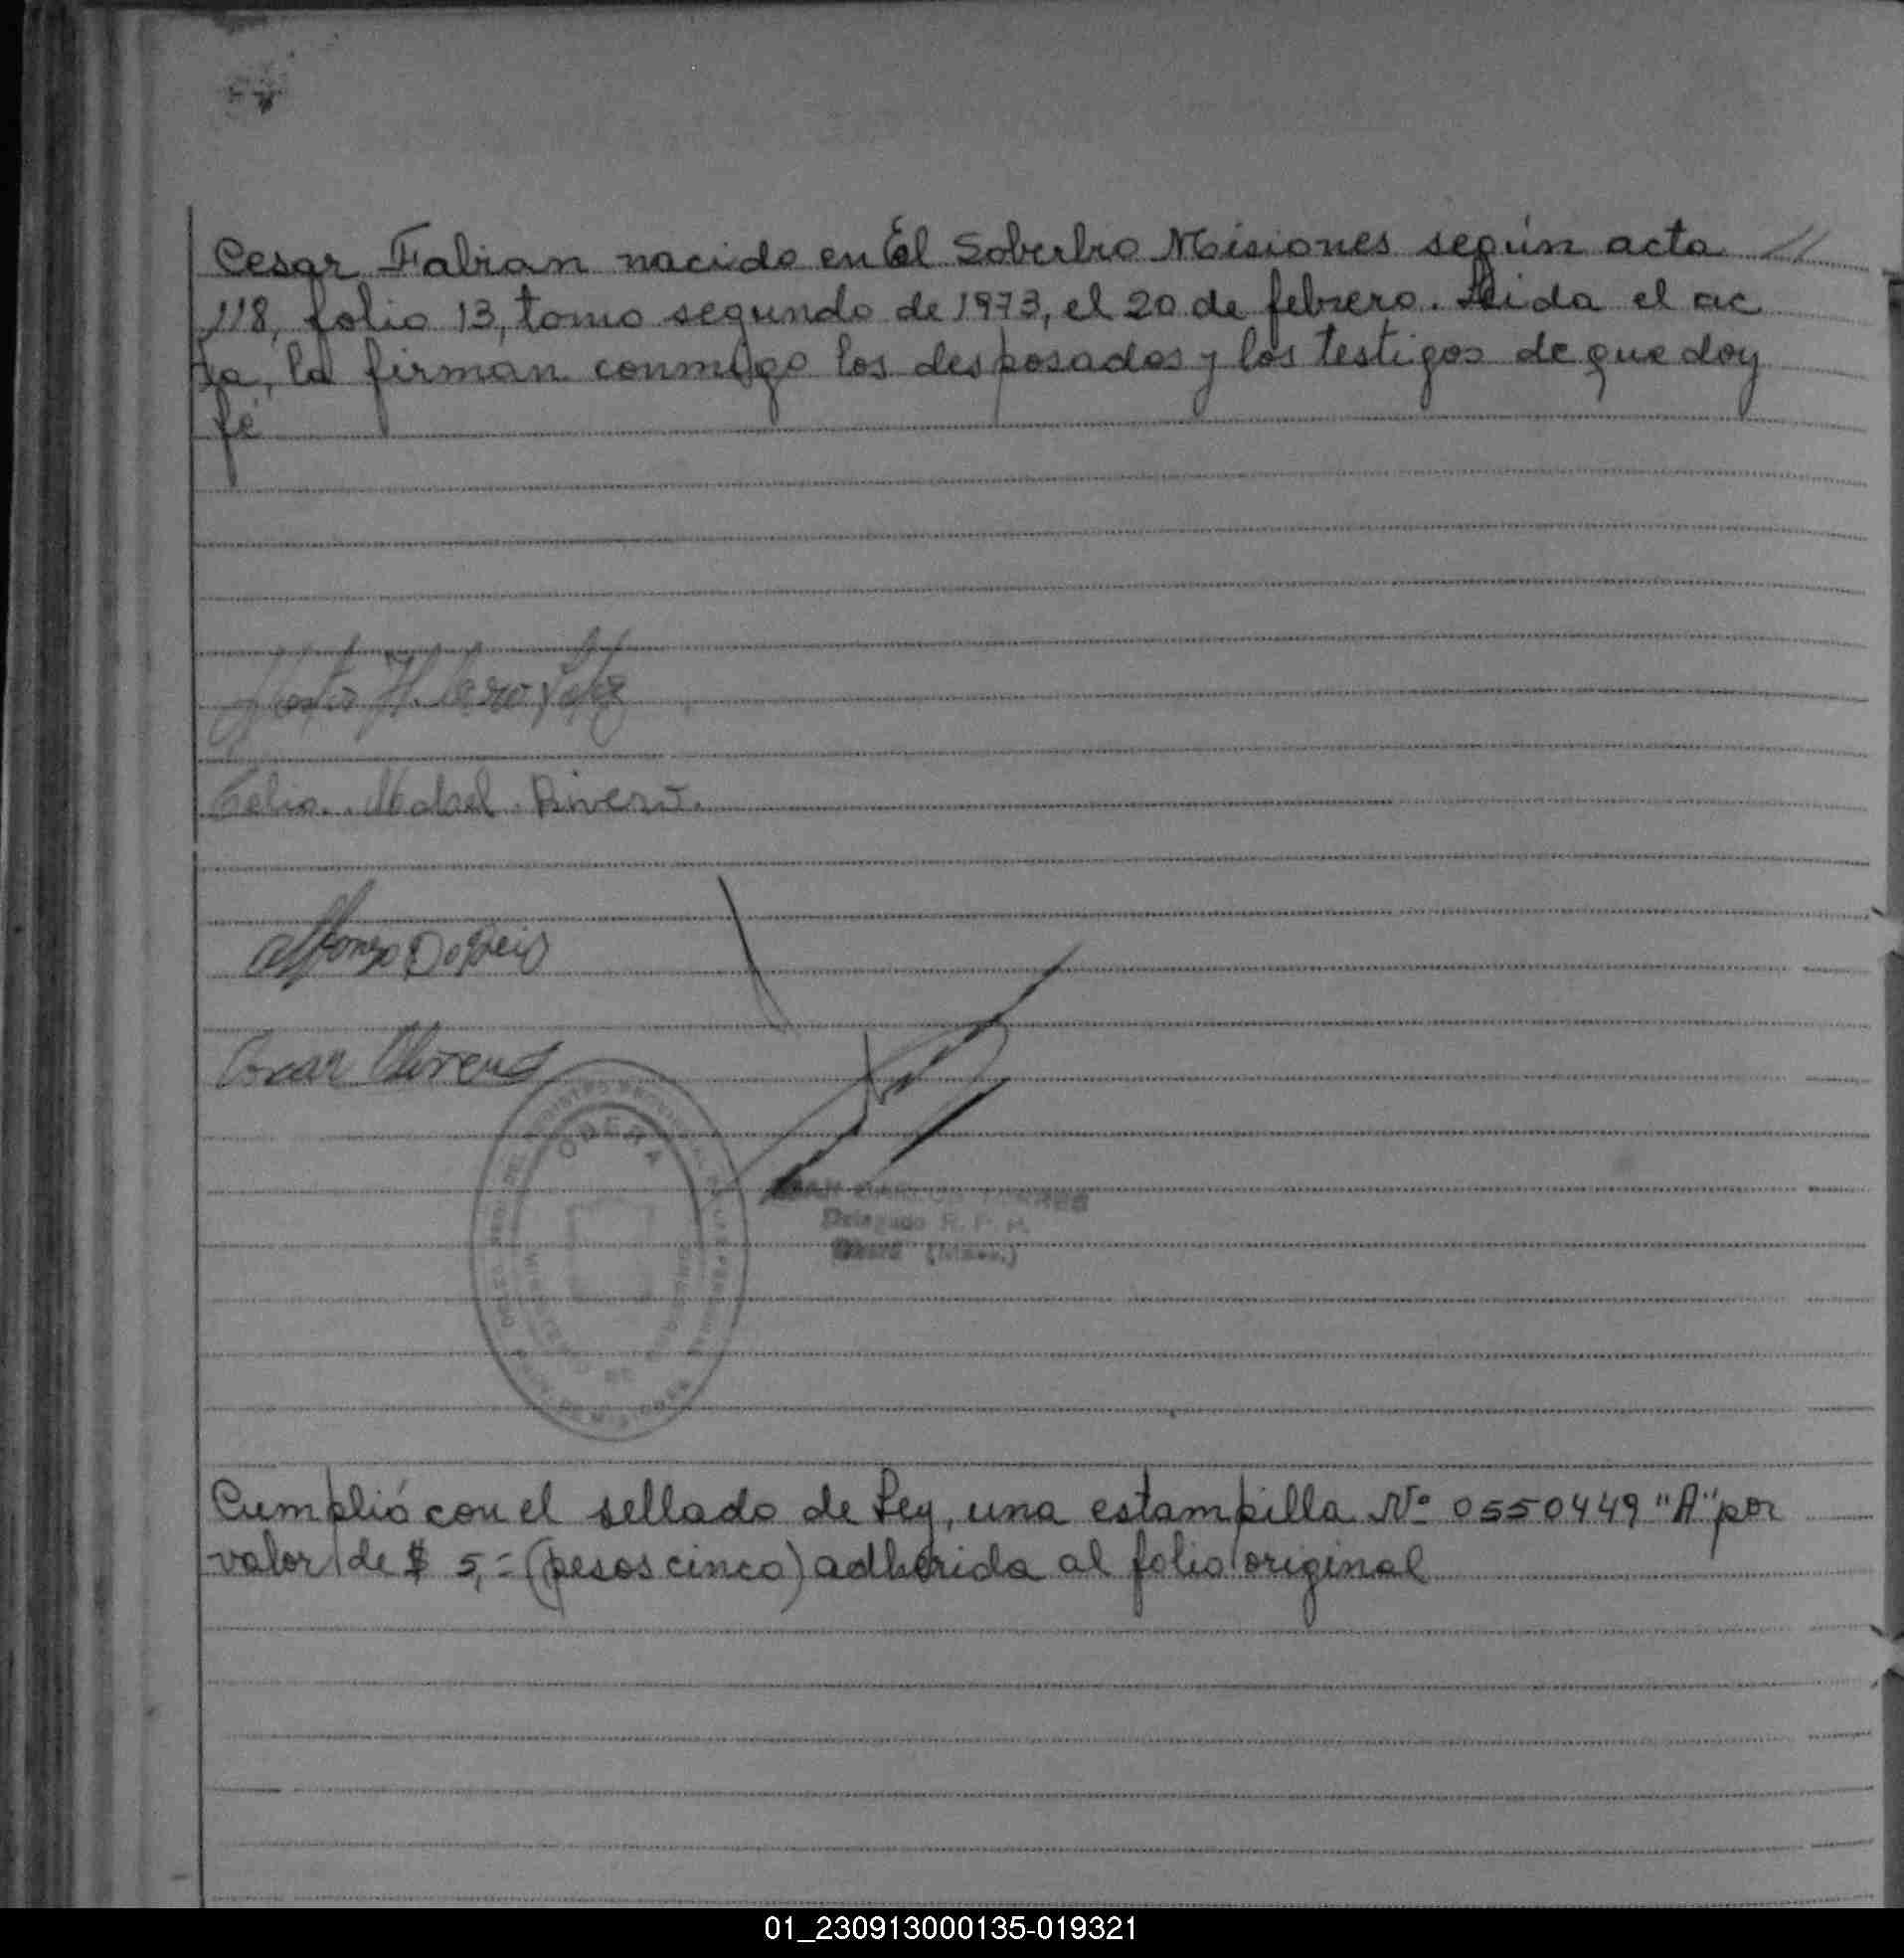 Cesar Fabian nacido en El Soberbio Misiones según acta //
118, folio 13, tomo segundo de 1973, el 20 de febrero. Leida el ac
ta, la firman conmigo los desposados y los testigos de que doy
fé
Lopez
Nabel Rivero.
Alfonso
Oscar
OBERA
MINISTERIO DE GOBIERNO
Delegado R. P. P.
Oberá (Mnes.)
Cumplió con el sellado de Ley, una estampilla Nº 0550449 "A" por
valor de $ 5,= (pesos cinco) adherida al folio original
01_230913000135-019321